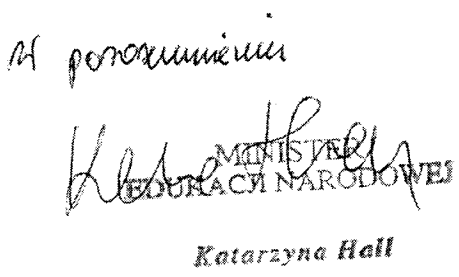 W porozumieniu
MINISTER
EDUKACJI NARODOWEJ
Katarzyna Hall